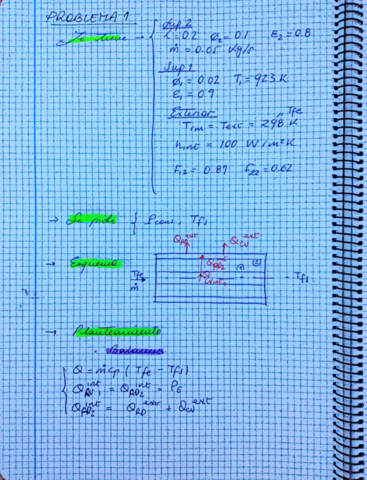 PROBLEMA 1
Se tiene → Sup 2
L=0.2 φ2=0.1 ε2=0.8
ṁ = 0.05 kg/s
Sup 1
φ1 = 0.02 T1=923K
ε1 = 0.9
Exterior Tfe
T∞ = Text = 298 K
hint = 100 W/m²K
F12 = 0.89 F22=0.02
→ Se pide { Pcons, Tfs
QRD ext QCV ext
→ Esquema Tfe ṁ QRD2 int Tfs
→ Planteamiento
Q = ṁ cp (Tfe - Tfs)
QRD1 int = QRD2 int = PE
QRD2 int = QRD ext + QCV ext